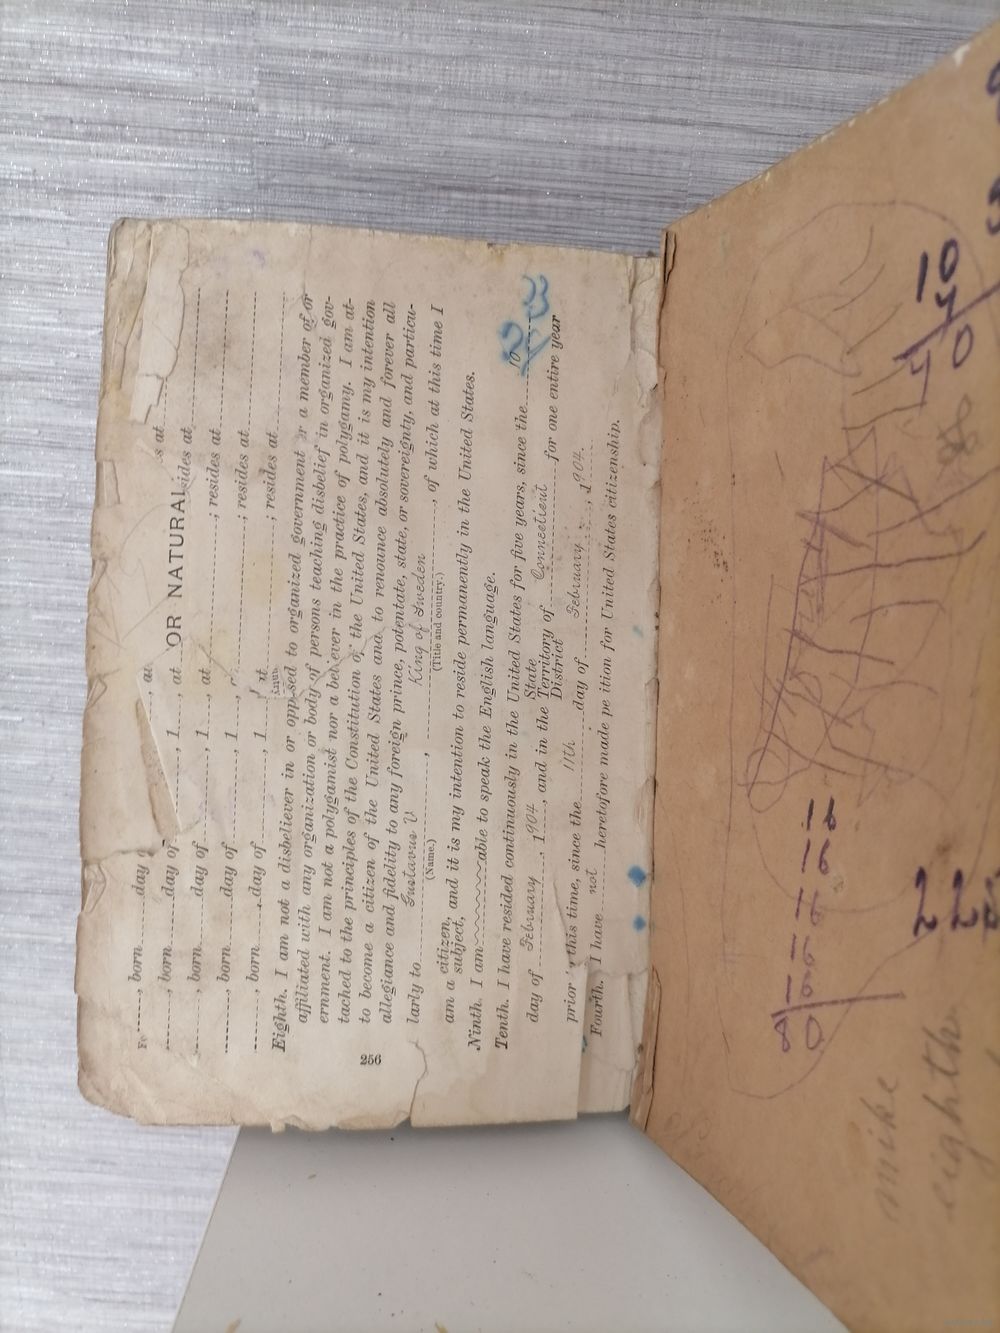 OR NATURAL
born day of , 1 , at
, born day of , 1 , at sides at
, born day of , 1 , at ; resides at
, born day of , 1 ; resides at
, born day of , 1 at ; resides at
Eighth. I am not a disbeliever in or opposed to organized government or a member of or
affiliated with any organization or body of persons teaching disbelief in organized gov-
ernment. I am not a polygamist nor a believer in the practice of polygamy. I am at-
tached to the principles of the Constitution of the United States, and it is my intention
to become a citizen of the United States and to renounce absolutely and forever all
allegiance and fidelity to any foreign prince, potentate, state, or sovereignty, and particu-
larly to Gustavus V , King of Sweden , of which at this time I
(Name.) (Title and country.)
am a citizen, subject, and it is my intention to reside permanently in the United States.
Ninth. I am able to speak the English language.
Tenth. I have resided continuously in the United States for five years, since the 10
day of February , 1904 , and in the State Territory District of Connecticut for one entire year
prior this time, since the 11th day of February , 1904
Fourth. I have not heretofore made pe ition for United States citizenship.
256
10
4
40
16
16
16
16
16
80
22
mike
eighth